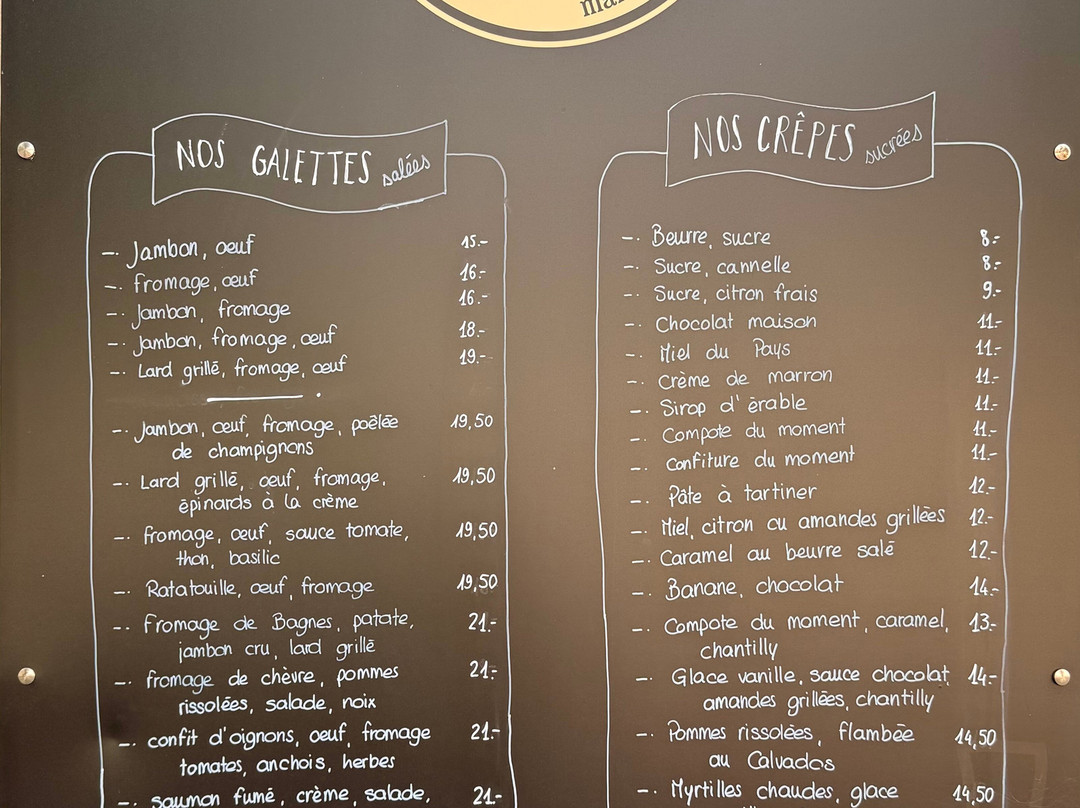 NOS GALETTES salées
-. Jambon, œuf 15.-
-. fromage, œuf 16.-
-. Jambon, fromage 16.-
-. Jambon, fromage, œuf 18.-
-. Lard grillé, fromage, œuf 19.-
-. Jambon, œuf, fromage, poêlée 19,50
de champignons
-. Lard grillé, œuf, fromage, 19,50
épinards à la crème
-. fromage, œuf, sauce tomate, 19,50
thon, basilic
-. Ratatouille, œuf, fromage 19,50
-. fromage de Bagnes, patate, 21.-
jambon cru, lard grillé
-. fromage de chèvre, pommes 21.-
rissolées, salade, noix
-. confit d'oignons, œuf, fromage 21.-
tomates, anchois, herbes
-. saumon fumé, crème, salade, 21.-
NOS CRÊPES sucrées
-. Beurre, sucre 8.-
-. Sucre, cannelle 8.-
-. Sucre, citron frais 9.-
-. Chocolat maison 11.-
-. Miel du Pays 11.-
-. Crème de marron 11.-
-. Sirop d'érable 11.-
-. Compote du moment 11.-
-. Confiture du moment 11.-
-. Pâte à tartiner 12.-
-. Miel, citron ou amandes grillées 12.-
-. Caramel au beurre salé 12.-
-. Banane, chocolat 14.-
-. Compote du moment, caramel, 13.-
chantilly
-. Glace vanille, sauce chocolat 14.-
amandes grillées, chantilly
-. Pommes rissolées, flambée 14,50
au Calvados
-. Myrtilles chaudes, glace 14,50